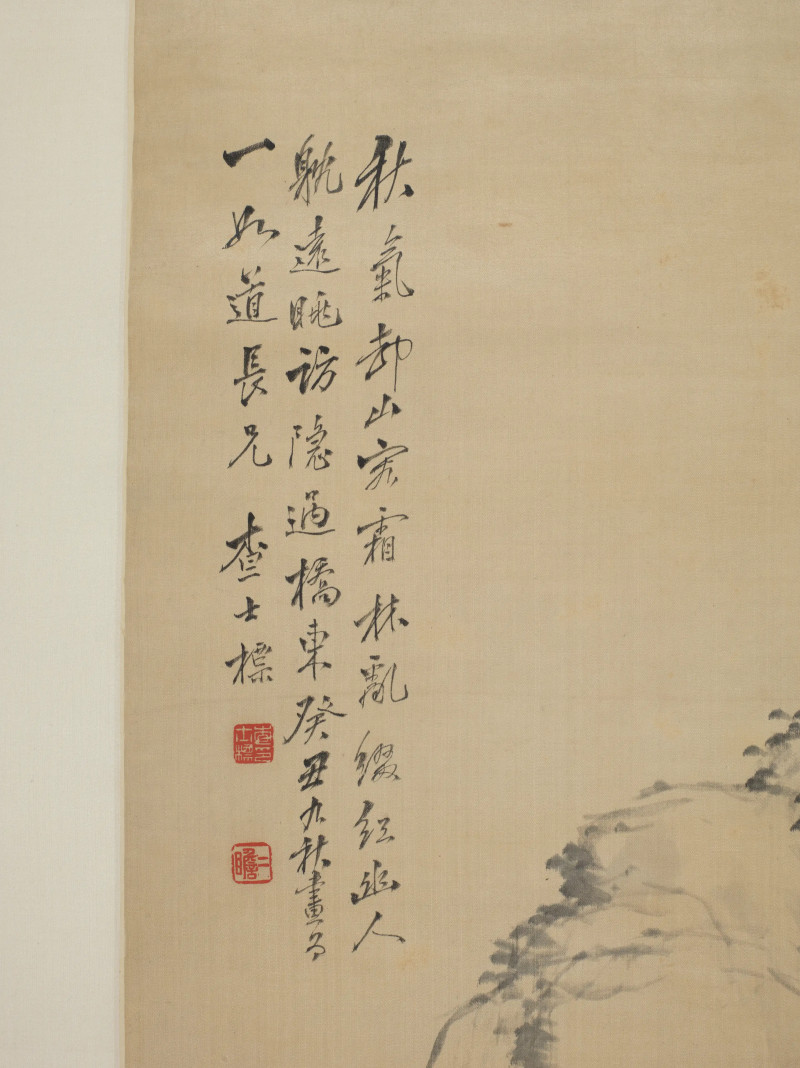 秋氣却山容霜林亂綴紅幽人
躭遠眺訪隱過橋東癸丑九秋畫為
一如道長兄 查士標
查士標印
二瞻